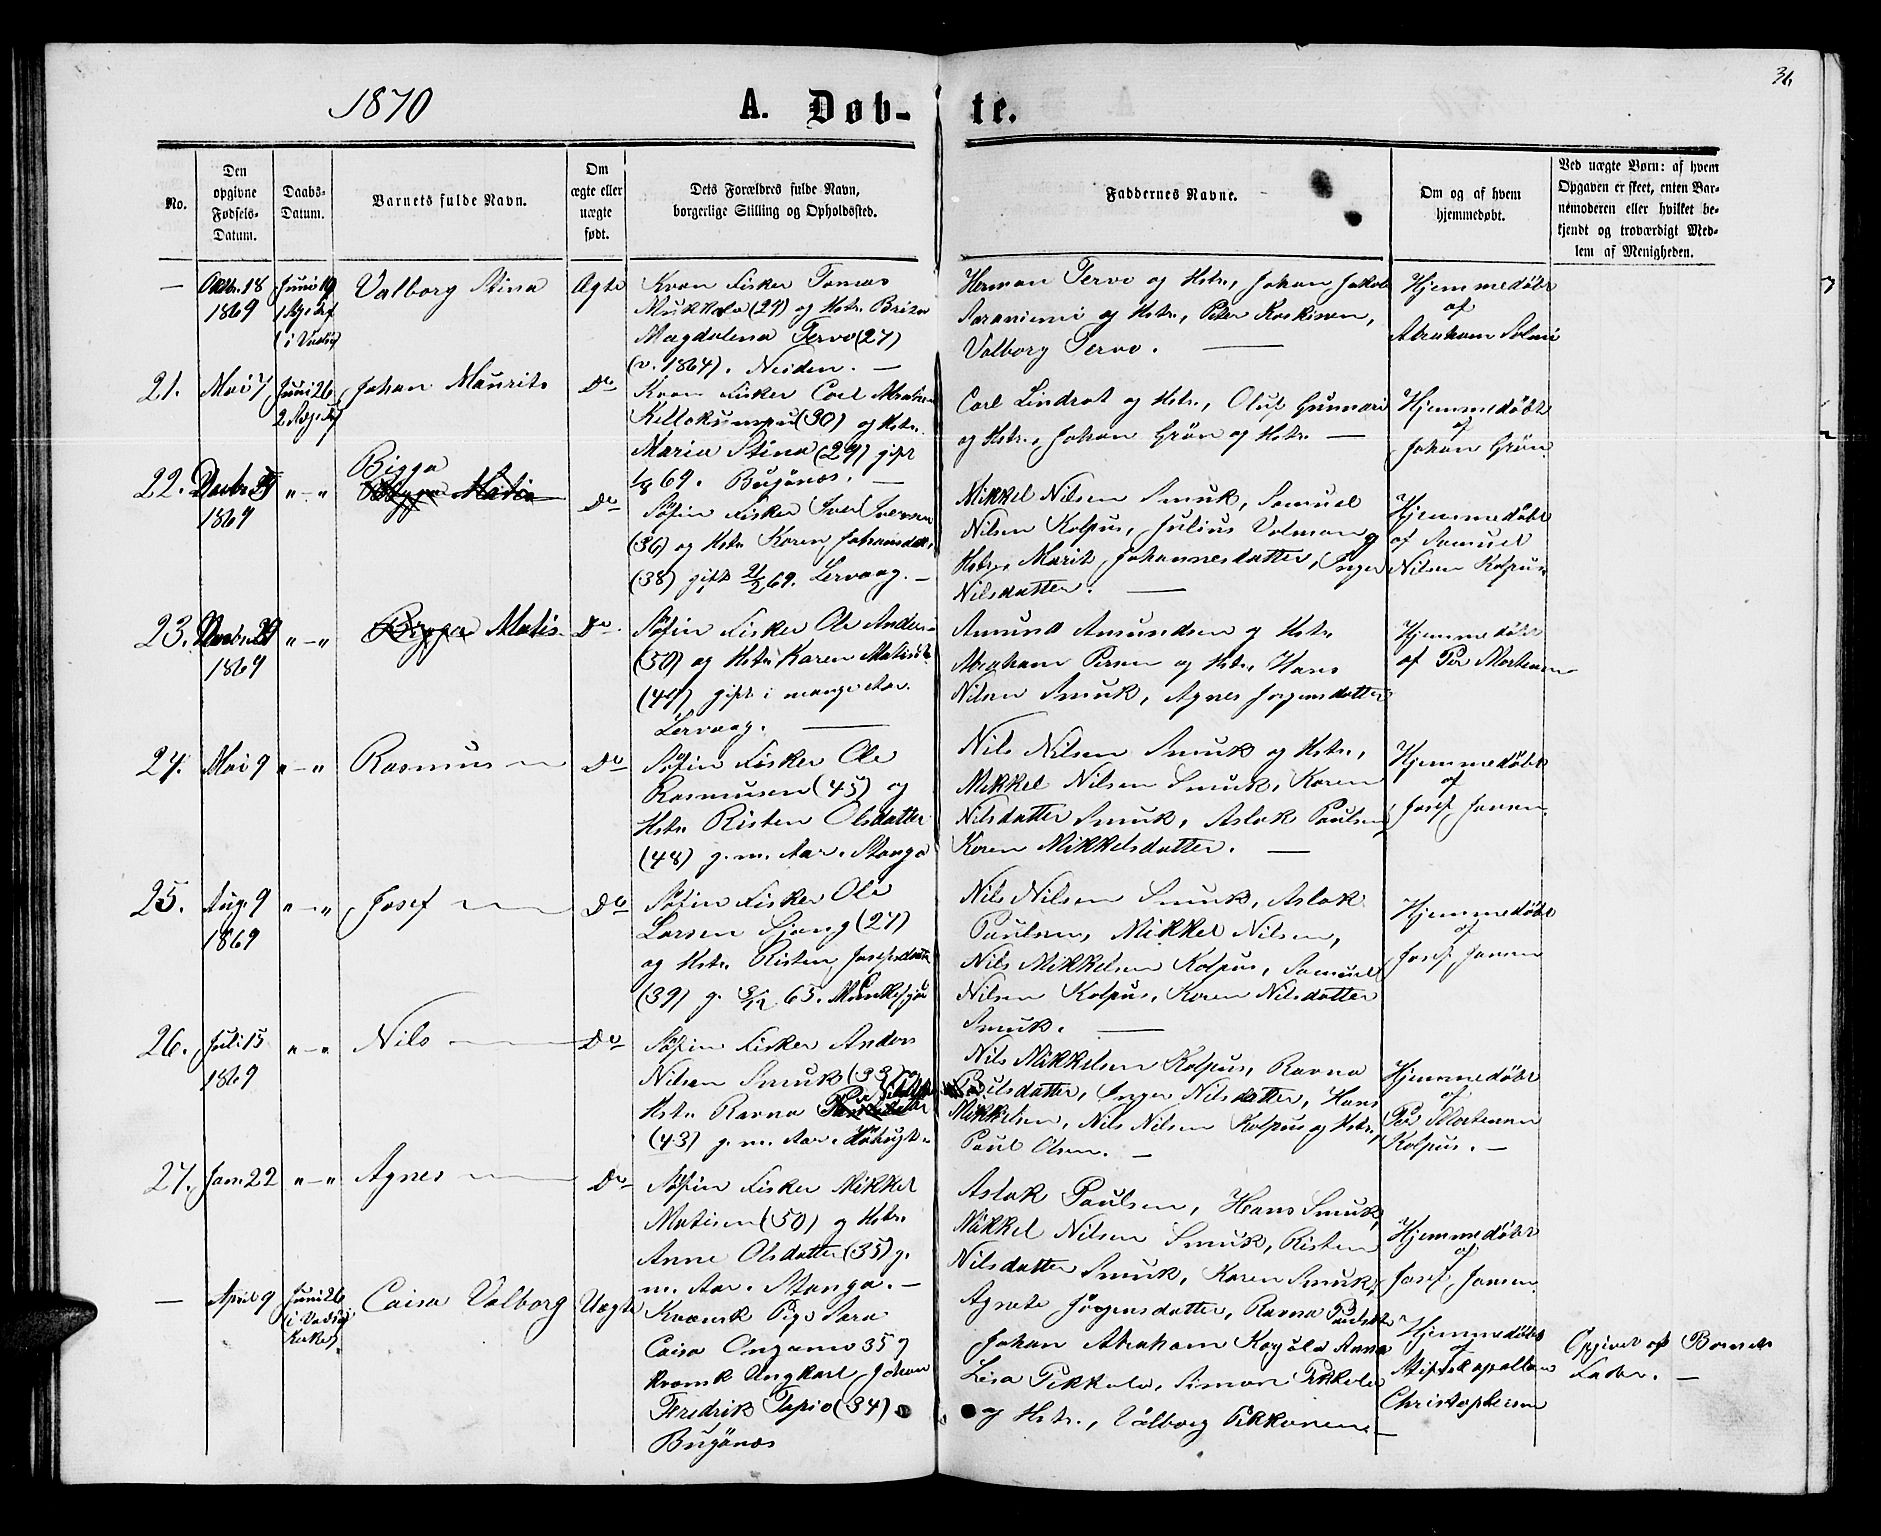 1870
A. Døb-
te.
36
No.
Den
opgivne
Fødsels-
Datum.
Daabs-
Datum.
Barnets fulde Navn.
Om
ægte eller
uægte
født.
Dets Forældres fulde Navn,
borgerlige Stilling og Opholdssted.
Faddernes Navne.
Om og af hvem
hjemmedøbt.
Ved uægte Børn: af hvem
Opgaven er skeet, enten Bar-
nemoderen eller hvilket be-
kjendt og troværdigt Med-
lem af Menigheden.
—
Oktbr. 18
1869
Juni 19
i Vadsø
Valborg Stina
Ægte
Kvæn Fisker Tomas
Mukkala (29) og Hstr. Brita
Magdalena Tervo (27)
(v. 1864). Neiden. —
Herman Tervo og Hstr., Johan Jakob
Saraniemi og Hstr., Peter Koskinen,
Valborg Tervo. —
Hjemmedøbt
af
Abraham
21.
Mai 7
Juni 26
Johan Maurits
Do
Kvæn Fisker Carl
Killokumpu (30) og Hstr.
Maria Stina (29) gift
1/8 69. Bugönæs. —
Carl Lindrot og Hstr., Oluf Gunnari
og Hstr., Johan Grön og Hstr. —
Hjemmedøbt
af
Johan Grön
22.
1869
" – "
Bigga
Do
Söfin Fisker Iver Iversen
(36) og Hstr. Karen
(38) gift 21/2 69. Lervaag. —
Mikkel Nilsen Smuk, Samuel
Nilsen Kolpus, Julius Volman og
Hstr., Marit Johannesdatter, Inger
Nilsdatter. —
Hjemmedøbt
af Samuel
Nilsen Kolpus
23.
1869
" – "
Bigga Matis
Do
Söfin Fisker Ole Anders.
(50) og Hstr. Karen
(44) gift i mange Aar.
Lervaag. —
Amund Amundsen og Hstr.
Abraham Persen og Hstr. Hans
Nilsen Smuk, Agnes Jörgensdatter
Hjemmedøbt
af Per Mortensen
24.
Mai 9
" – "
Rasmus
Do
Söfin Fisker Ole
Rasmusen (45) og
Hstr. Risten Olsdatter
(48) g. m. Aar. Stanga
Nils Nilsen Smuk og Hstr.,
Mikkel Nilsen Smuk, Karen
Nilsdatter Smuk, Aslak Paulsen,
Karen Mikkelsdatter. —
Hjemmedøbt
af
Josef Jonsen
25.
Aug. 9
1869
" – "
Josef
Do
Söfin Fisker Ole
Larsen (27)
og Hstr. Risten Josefsdatter
(39) g. 3/12 65.
Nils Nilsen Smuk, Aslak
Paulsen, Mikkel Nilsen,
Nils Mikkelsen Kolpus, Samuel
Nilsen Kolpus, Karen Nilsdatter
Smuk. —
Hjemmedøbt
af
Josef Jonsen
26.
Juli 15
1869
" – "
Nils
Do
Söfin Fisker Anders
Nilsen Smuk (33) og
Hstr. Ravna
(43) g. m. Aar.
Nils Mikkelsen Kolpus, Ravna
Inger Nilsdatter, Hans
Mikkelsen, Nils Nilsen Kolpus og Hstr.,
Paul Olsen. —
Hjemmedøbt
af
Per Mortensen
Kolpus. —
27.
Jan. 22
" – "
Agnes
Do
Söfin Fisker Mikkel
Matisen (50) og Hstr.
Anne Olsdatter (35) g.
m. Aar. Stanga. —
Aslak Paulsen, Hans Smuk,
Mikkel Nilsen Smuk, Risten
Nilsdatter Smuk, Karen Smuk,
Agnete Jörgensdatter, Ravna
Hjemmedøbt
af
Josef Jonsen
—
April 9
Juni 26
(i Vadsø
Kirke).
Caisa Valborg
Uægte
Kvænsk Pige Sara
Caisa 35 og
Kvænsk Ungkarl Johan
Fredrik Tapio (34)
Bugönæs
Johan Abraham Anna
Lisa Pikkola, Simon Pikkola
og Hstr., Valborg Pikkonen. —
Hjemmedøbt
af
Christophersen
Opgivet af Barnets
Fader. —